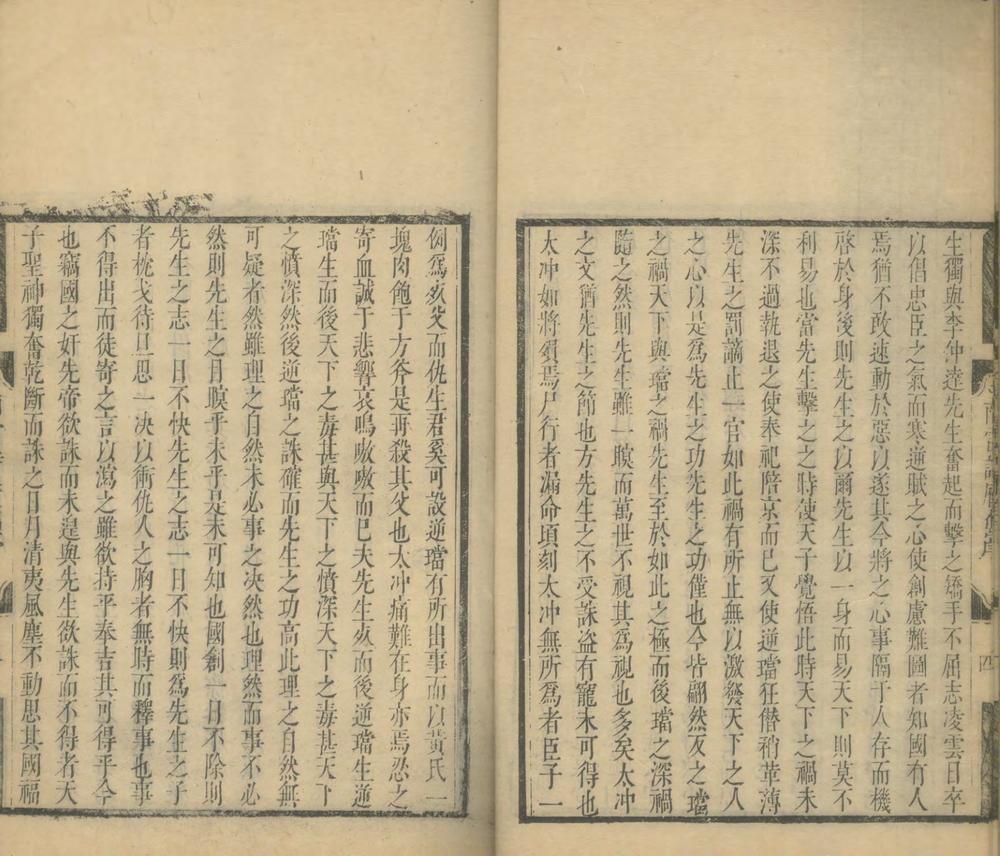 生獨與李仲達先生奮起而擊之矯手不屈志凌雲日卒
以倡忠臣之氣而寒逆賊之心使創慮難圖者知國有人
焉猶不敢速動於惡以遂其今將之心事隔于人存而機
啓於身後則先生之以爾先生以一身而易天下則莫不
利易也當先生擊之之時使天子覺悟此時天下之禍未
深不過執退之使奉祀陪京而已又使逆璫狂僭稍革薄
先生之罰謫止一官如此禍有所止無以激發天下之人
之心以是爲先生之功先生之功僅也今皆翩然友之璫
之禍天下與璫之禍先生至於如此之極而後璫之深禍
隨之然則先生雖一瞑而萬世不視其爲視也多矣太冲
之文猶先生之節也方先生之不受誅盜有寵未可得也
太冲如將殞焉尸行者漏命頃刻太冲無所爲者臣子一
四
例爲死父而仇生君奚可設逆璫有所出事而以黃氏一
塊肉飽于方斧是再殺其父也太冲痛難在身亦焉忍之
寄血誠于悲響哀鳴嗷嗷而已夫先生死而後逆璫生逆
璫生而後天下之毒甚與天下之憤深天下之毒甚天下
之憤深然後逆璫之誅確而先生之功高此理之自然無
可疑者然雖理之自然未必事之决然也理然而事不必
然則先生之目瞑乎未乎是未可知也國創一日不除則
先生之志一日不快先生之志一日不快則爲先生之子
者枕戈待旦思一决以衝仇人之胸者無時而釋事也事
不得出而徒寄之言以瀉之雖欲持平奉吉其可得乎今
也竊國之奸先帝欲誅而未遑與先生欲誅而不得者天
子聖神獨奮乾斷而誅之日月清夷風塵不動思其國福